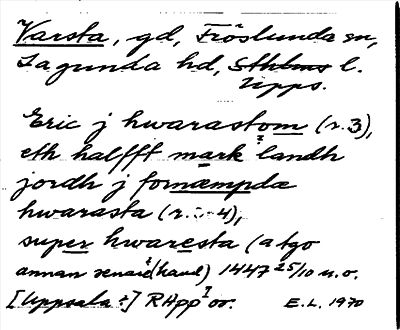 Varsta, gd, Fröslunda sn,
Lagunda hd, Sthlms l.
Upps.
Eric j hwarastom (r. 3),
eth halfft mark landh
jordh j fornæmpdæ
hwarasta (r. 3-4),
super hwaresta (a tgo
annan senare hand) 1447 25/10 u.o.
[Uppsala?] RApp 1 or.
E.L. 1970